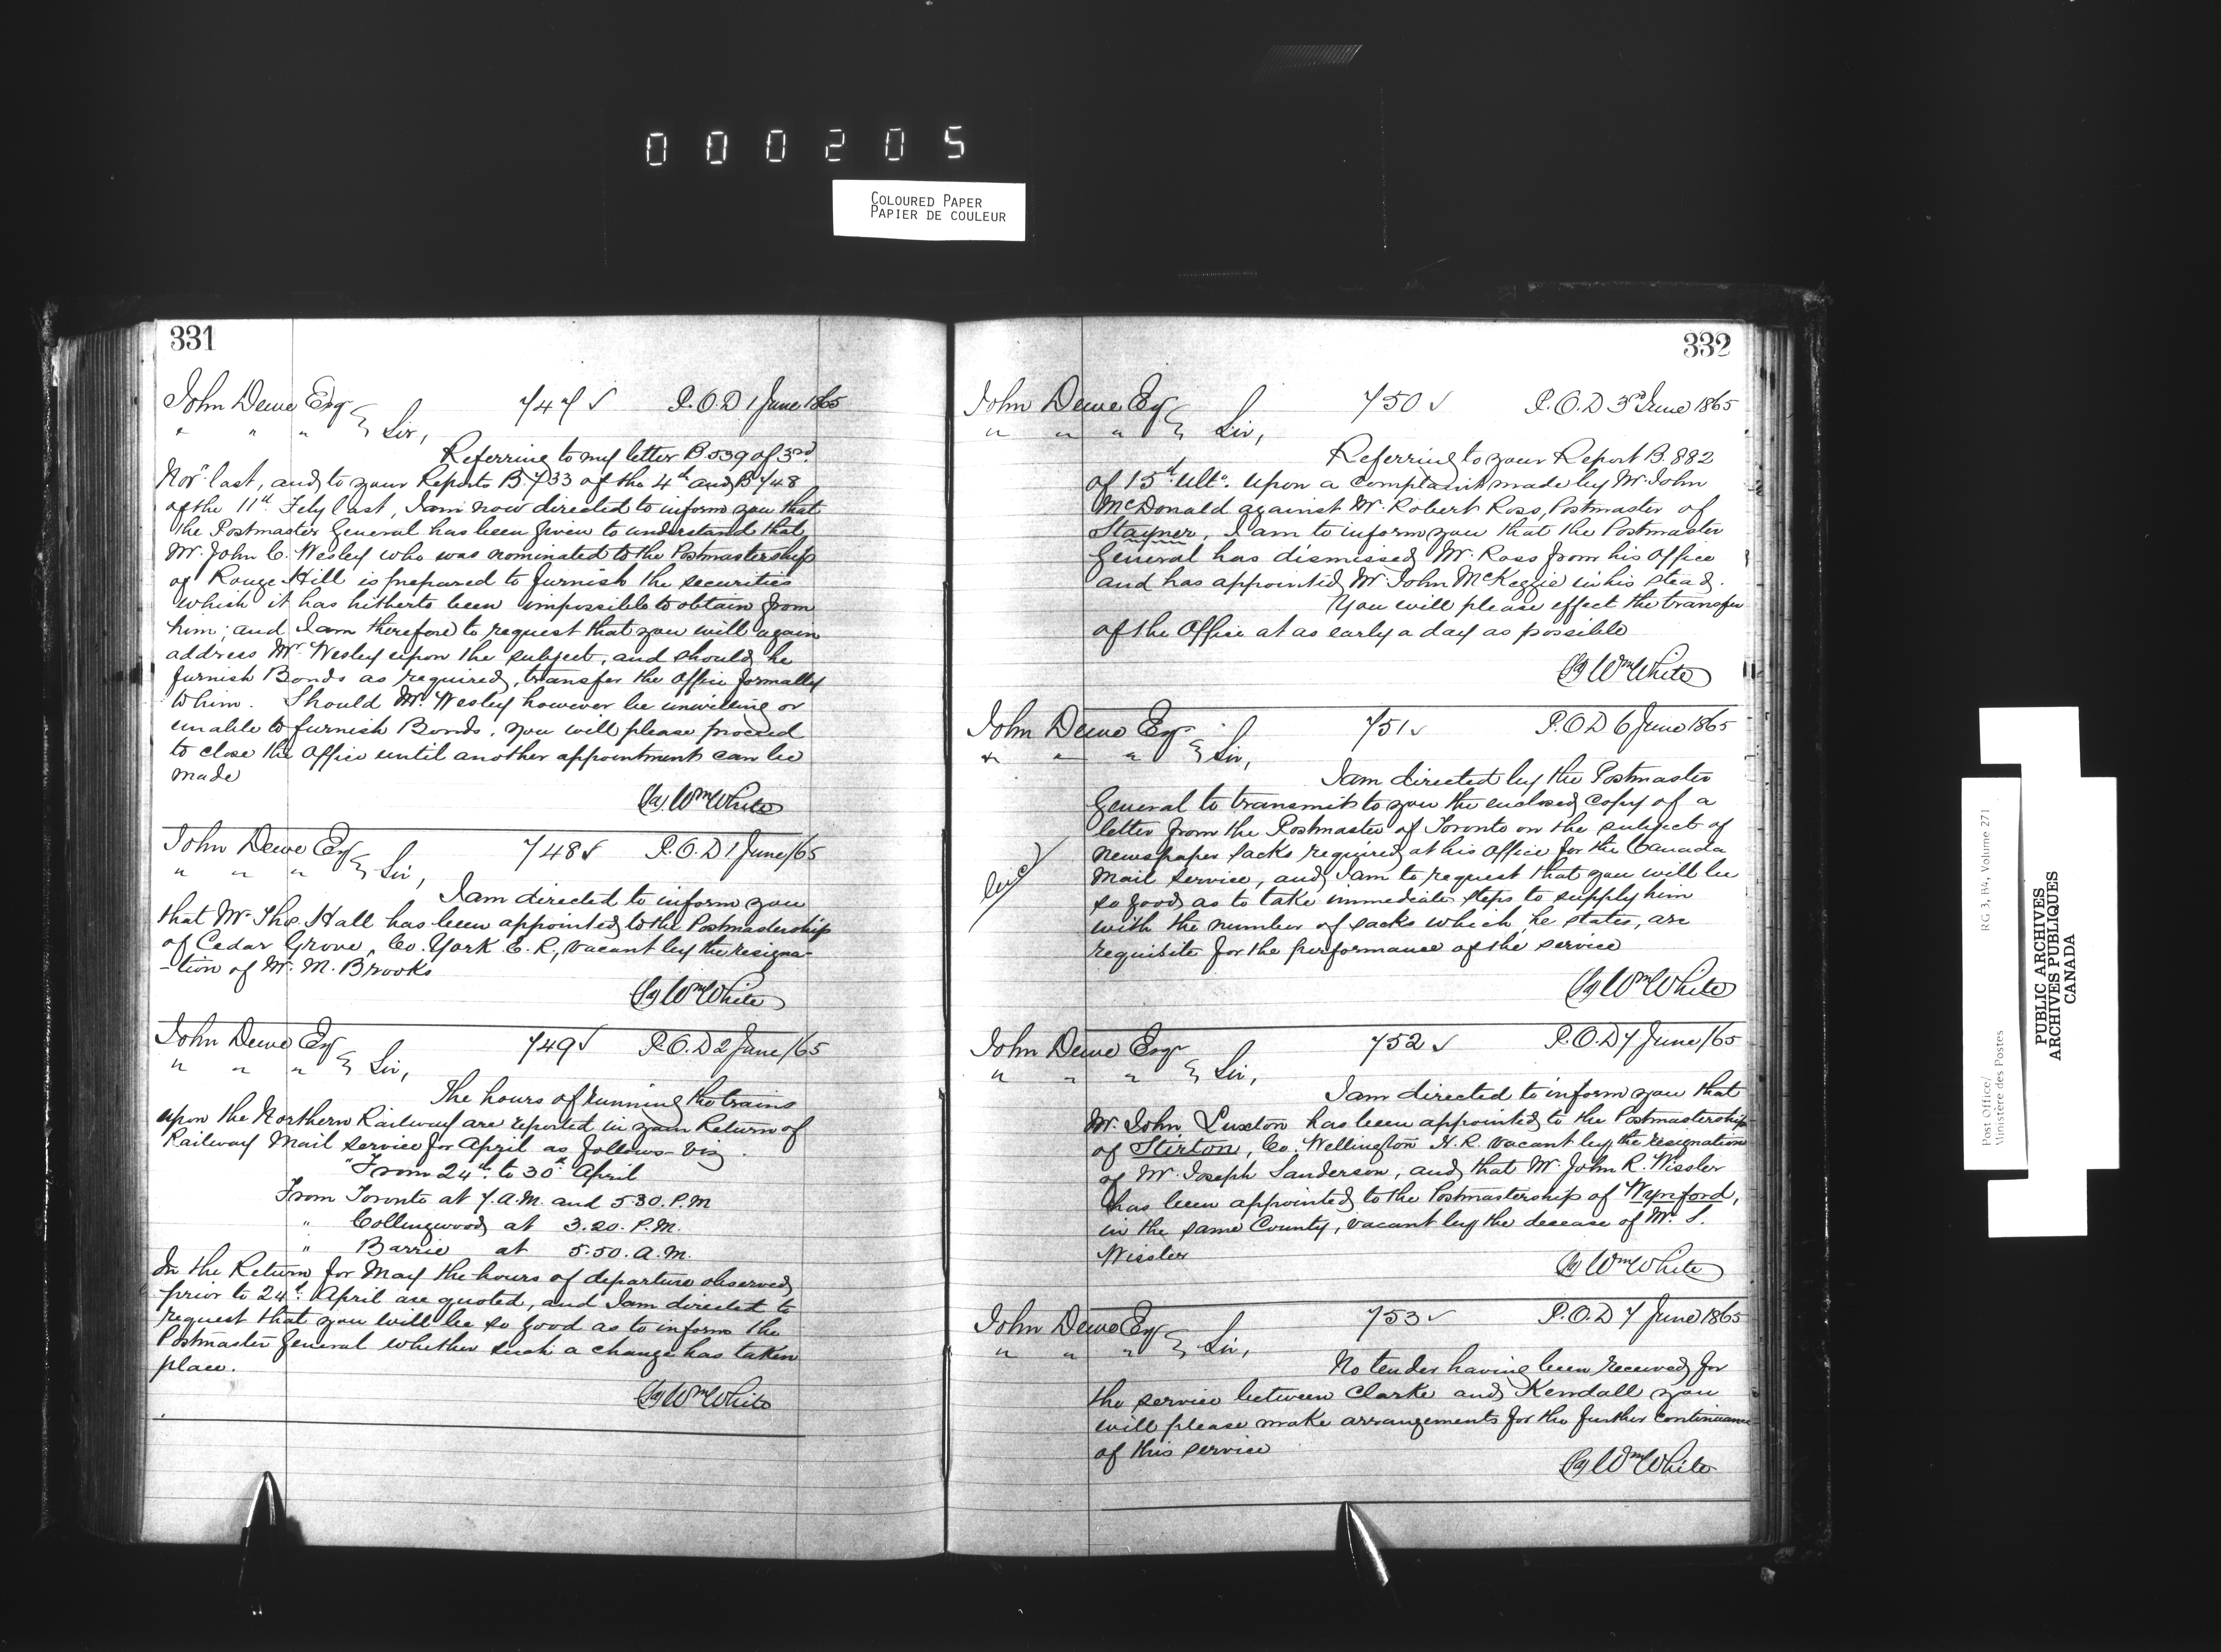 000205
COLOURED PAPER
PAPIER DE COULEUR
331
John Dewe Esqr 747 ✓ P.O.D 1 June 1865
" " " Sir,
Referring to my letter B.539 of 3rd
Novr last, and to your Reports B.733 of the 4th and B748
of the 11th Feby last, I am now directed to inform you that
the Postmaster General has been given to understand that
Mr. John C. Wesley who was nominated to the Postmastership
of Rouge Hill is prepared to furnish the securities
which it has hitherto been impossible to obtain from
him; and I am therefore to request that you will again
address Mr. Wesley upon the subject, and should he
furnish Bonds as required, transfer the Office formally
to him. Should Mr. Wesley however be unwilling or
unable to furnish Bonds, you will please proceed
to close the Office until another appointment can be
made
(Sg) Wm White
John Dewe Esq 748 ✓ P.O.D 1 June/65
" " " Sir,
I am directed to inform you
that Mr. Thos. Hall has been appointed to the Postmastership
of Cedar Grove, Co. York E.R., vacant by the resigna-
-tion of Mr. M. Brooks
(Sg) Wm White
John Dewe Esq 749 ✓ P.O.D 2 June/65
" " " Sir,
The hours of running the trains
upon the Northern Railway are reported in your Return of
Railway Mail service for April as follows viz.
"From 24th to 30th April
From Toronto at 7.A.M. and 5.30.P.M
" Collingwood at 3.20.P.M.
" Barrie at 5.50.A.M.
In the Return for May the hours of departure observed
prior to 24th April are quoted, and I am directed to
request that you will be so good as to inform the
Postmaster General whether such a change has taken
place.
(Sg) Wm White
332
John Dewe Esq 750 ✓ P.O.D 3rd June 1865
" " " Sir,
Referring to your Report B.882
of 15th ulto. upon a complaint made by Mr. John
McDonald against Mr. Robert Ross, Postmaster of
Stayner, I am to inform you that the Postmaster
General has dismissed Mr. Ross from his Office
and has appointed Mr. John McKeggie in his stead.
You will please effect the transfer
of the Office at as early a day as possible
(Sg) Wm White
John Dewe Esqr 751 ✓ P.O.D 6 June 1865
" " " Sir,
I am directed by the Postmaster
General to transmit to you the enclosed copy of a
letter from the Postmaster of Toronto on the subject of
newspaper sacks required at his Office for the Canada
Mail service, and I am to request that you will be
so good as to take immediate steps to supply him
with the number of sacks which, he states, are
requisite for the performance of the service
(Sg) Wm White
John Dewe Esqr 752 ✓ P.O.D 7 June/65
" " " Sir,
I am directed to inform you that
Mr. John Luxton has been appointed to the Postmastership
of Stirton, Co. Wellington N.R. vacant by the resignation
of Mr. Joseph Sanderson, and that Mr. John R. Wissler
has been appointed to the Postmastership of Wynford,
in the same County, vacant by the decease of Mr. S.
Wissler
(Sg) Wm White
John Dewe Esq 753 ✓ P.O.D 7 June 1865
" " " Sir,
No tender having been received for
the service between Clarke and Kendall you
will please make arrangements for the further continuance
of this service
(Sg) Wm White
Post Office/ RG 3, B4, Volume 271
Ministère des Postes
PUBLIC ARCHIVES
ARCHIVES PUBLIQUES
CANADA